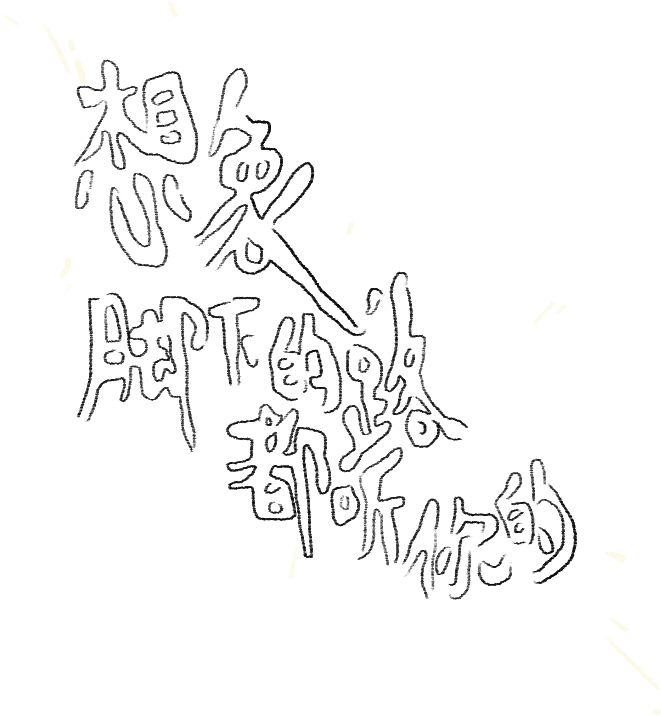 想象
脚下的路
都听你的